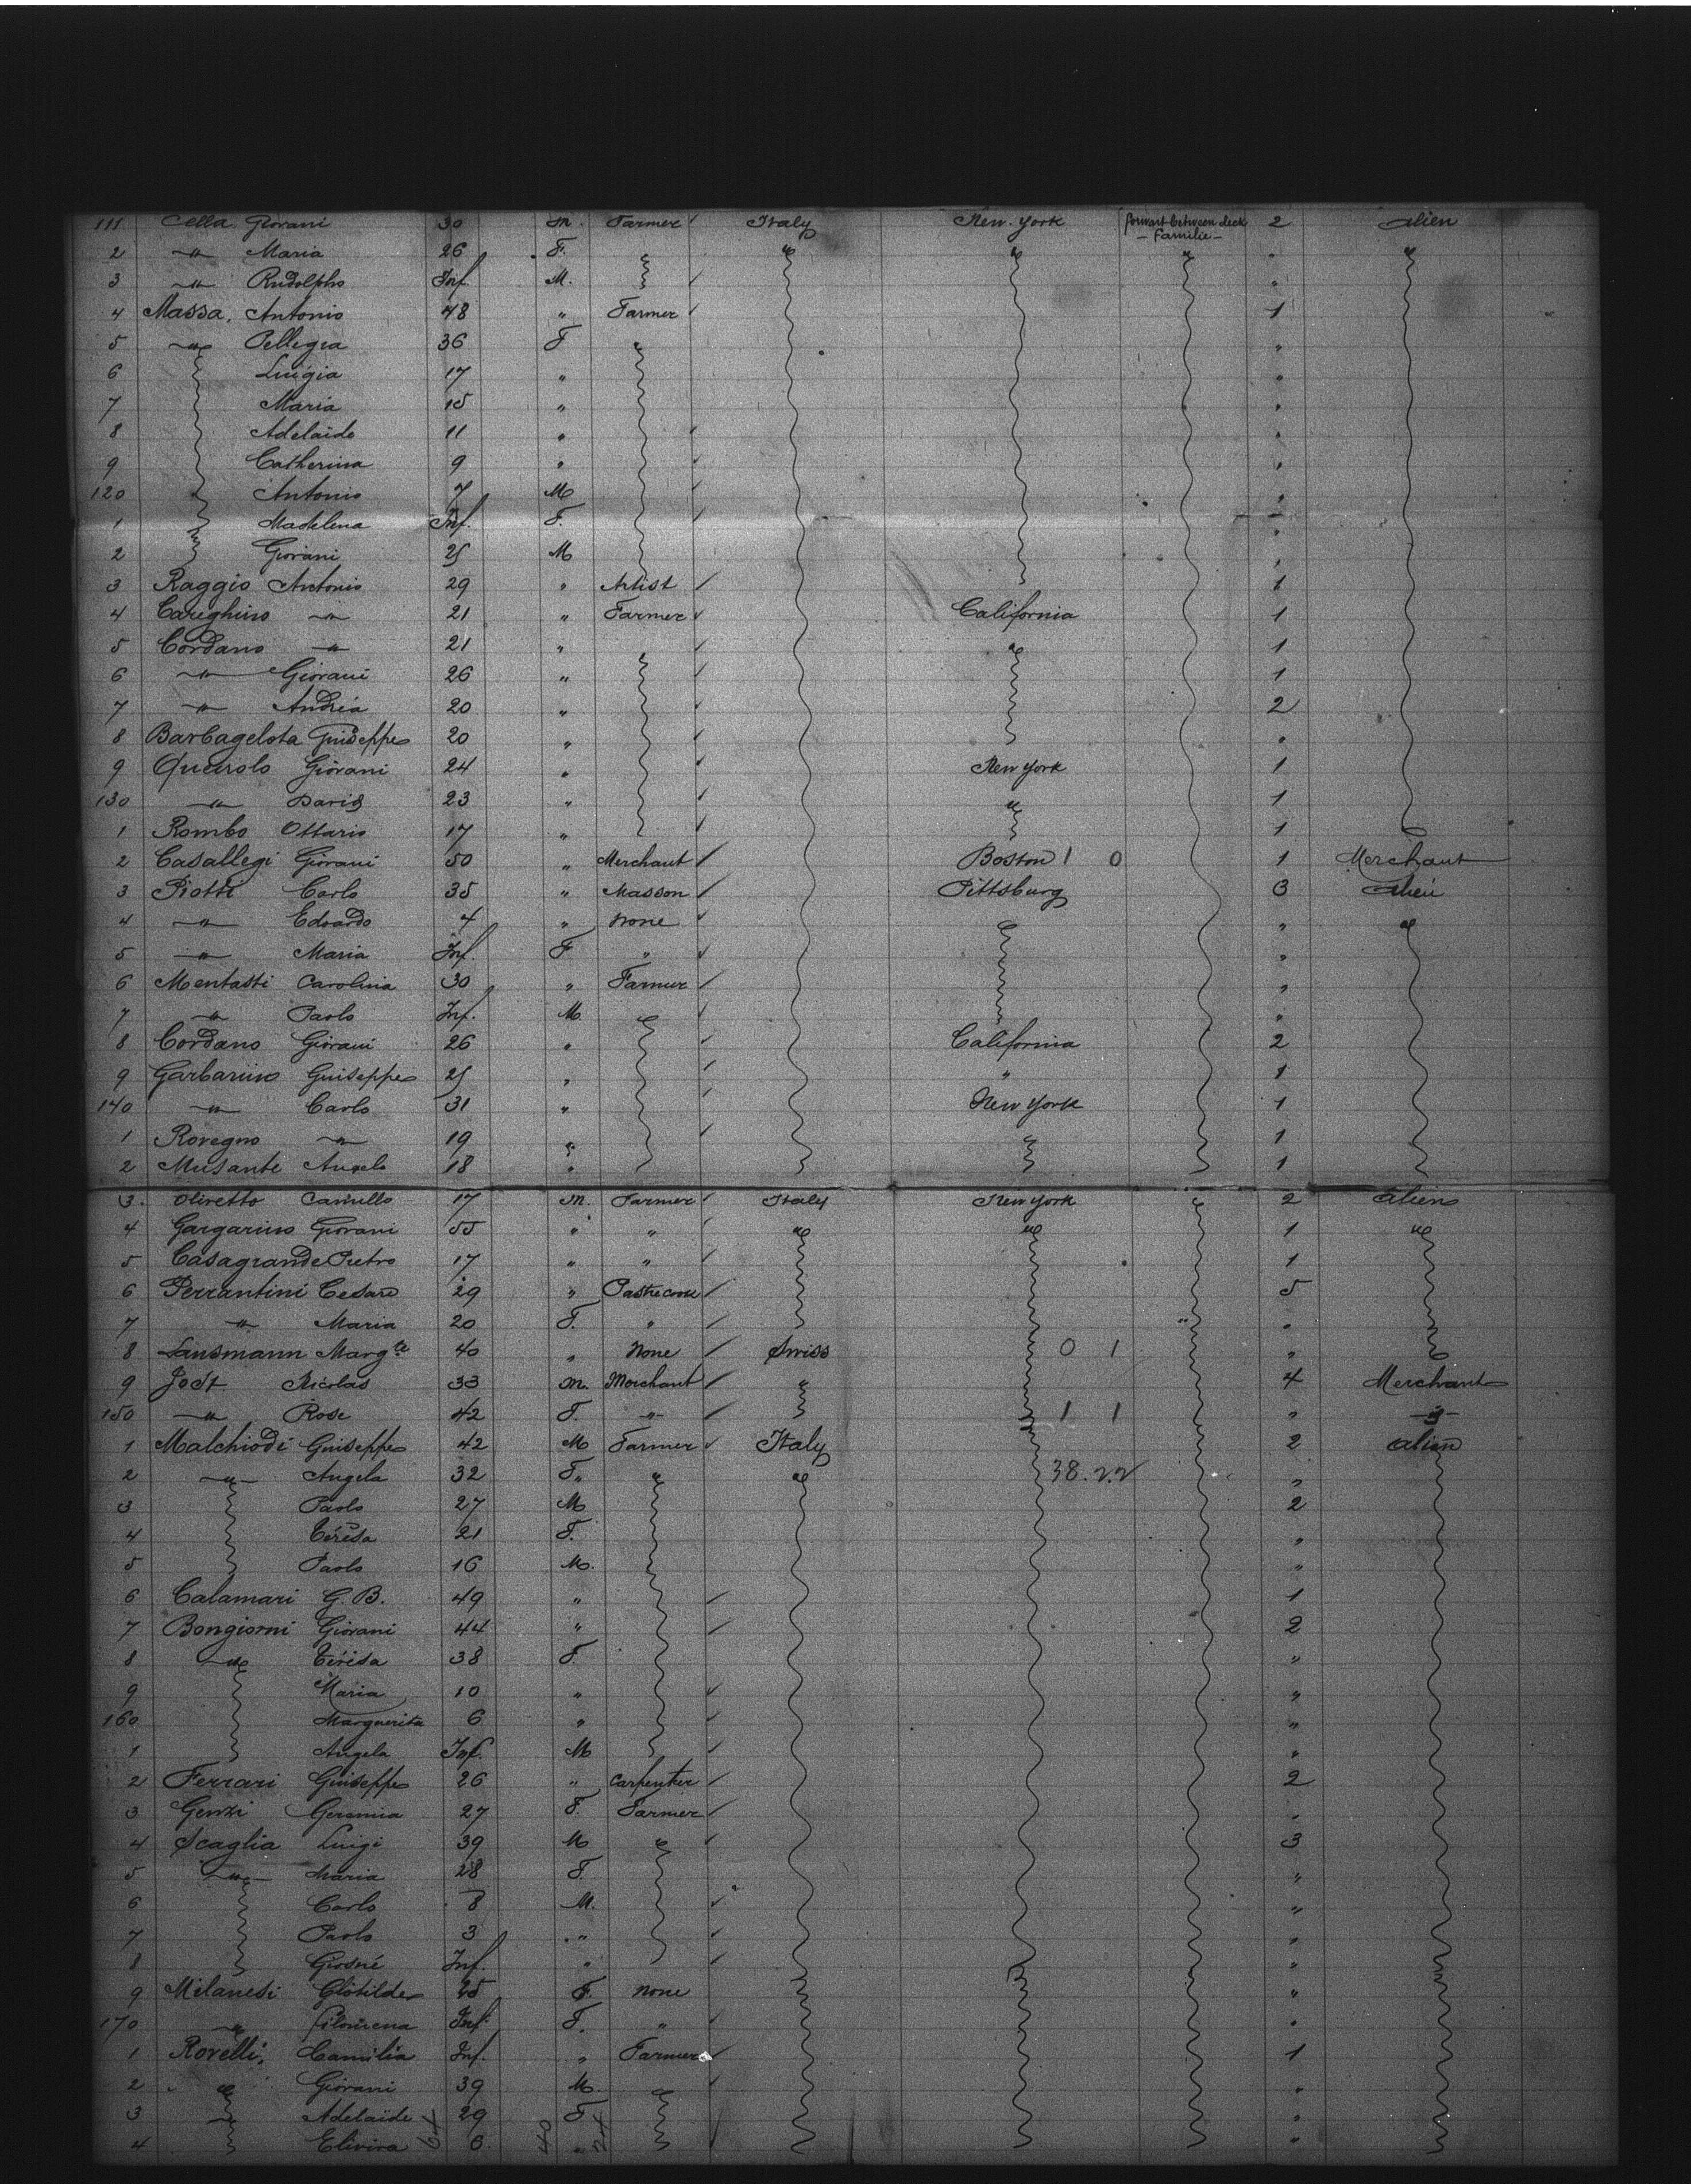 111 Cella Giovani 30 M. Farmer Italy New-York forwart between deck - Familie - 2 alien
2 " Maria 26 F. "
3 " Rudolpho Inf M. "
4 Massa, Antonio 48 " Farmer 1
5 " Pellegra 36 F "
6 Luigia 17 " "
7 Maria 15 " "
8 Adelaide 11 " "
9 Catherina 9 " "
120 Antonio 7 M "
1 Madelena Inf. F. "
2 Giovani 25 M "
3 Raggio Antonio 29 " Artist 1
4 Careghino " 21 " Farmer California 1
5 Cordano " 21 " " 1
6 " Giovani 26 " 1
7 " Andrea 20 " 2
8 Barbagelota Guiseppe 20 " "
9 Queirolo Giovani 24 " New York 1
130 " David 23 " " 1
1 Rombo Ottavio 17 " 1
2 Casallegi Giovani 50 " Merchant Boston 1 0 1 Merchant
3 Piotti Carlo 35 " Masson Pittsburg 3 alien
4 " Edoardo 4 " none " "
5 " Maria Inf. F " "
6 Mentasti Carolina 30 " Farmer "
7 " Paolo Inf. M. "
8 Cordano Giovani 26 " California 2
9 Garbarino Guiseppe 25 " " 1
140 " Carlo 31 " New York 1
1 Rovegno " 19 " 1
2 Musante Angelo 18 " 1
3. Oliretto Camillo 17 M. Farmer Italy New York 2 alien
4 Gargarino Giovani 55 " " " " 1 "
5 Casagrande Pietro 17 " " 1
6 Ferrantini Cesare 29 " 5
7 " Maria 20 F. " "
8 Lansmann Margte 40 " None Swiss 0 1 "
9 Jost Nicolas 33 M. Merchant " 4 Merchant
150 " Rose 42 F. " 1 1 " "
1 Malchiodi Guiseppe 42 M Farmer Italy 2 alien
2 " Angela 32 F. " " 38.22 "
3 Paolo 27 M 2
4 Teresa 21 F. "
5 Paolo 16 M. "
6 Calamari G.B. 49 " 1
7 Bongiorni Giovani 44 " 2
8 " Teresa 38 F. "
9 Maria 10 " "
160 Marguerita 6 " "
1 Angela Inf. M "
2 Ferrari Guiseppe 26 " Carpenter 2
3 Genzi Geremia 27 F. Farmer "
4 Scaglia Luigi 39 M " 3
5 " Maria 28 F. "
6 Carlo 8 M. "
7 Paolo 3 " "
8 Giosué Inf. " "
9 Milanesi Clotilde 25 F. none "
170 " filomena Inf. F. " "
1 Rovelli, Camilia Inf. " Farmer 1
2 " Giovani 39 M. "
3 Adelaide 29 F "
4 Elivira 6 " "